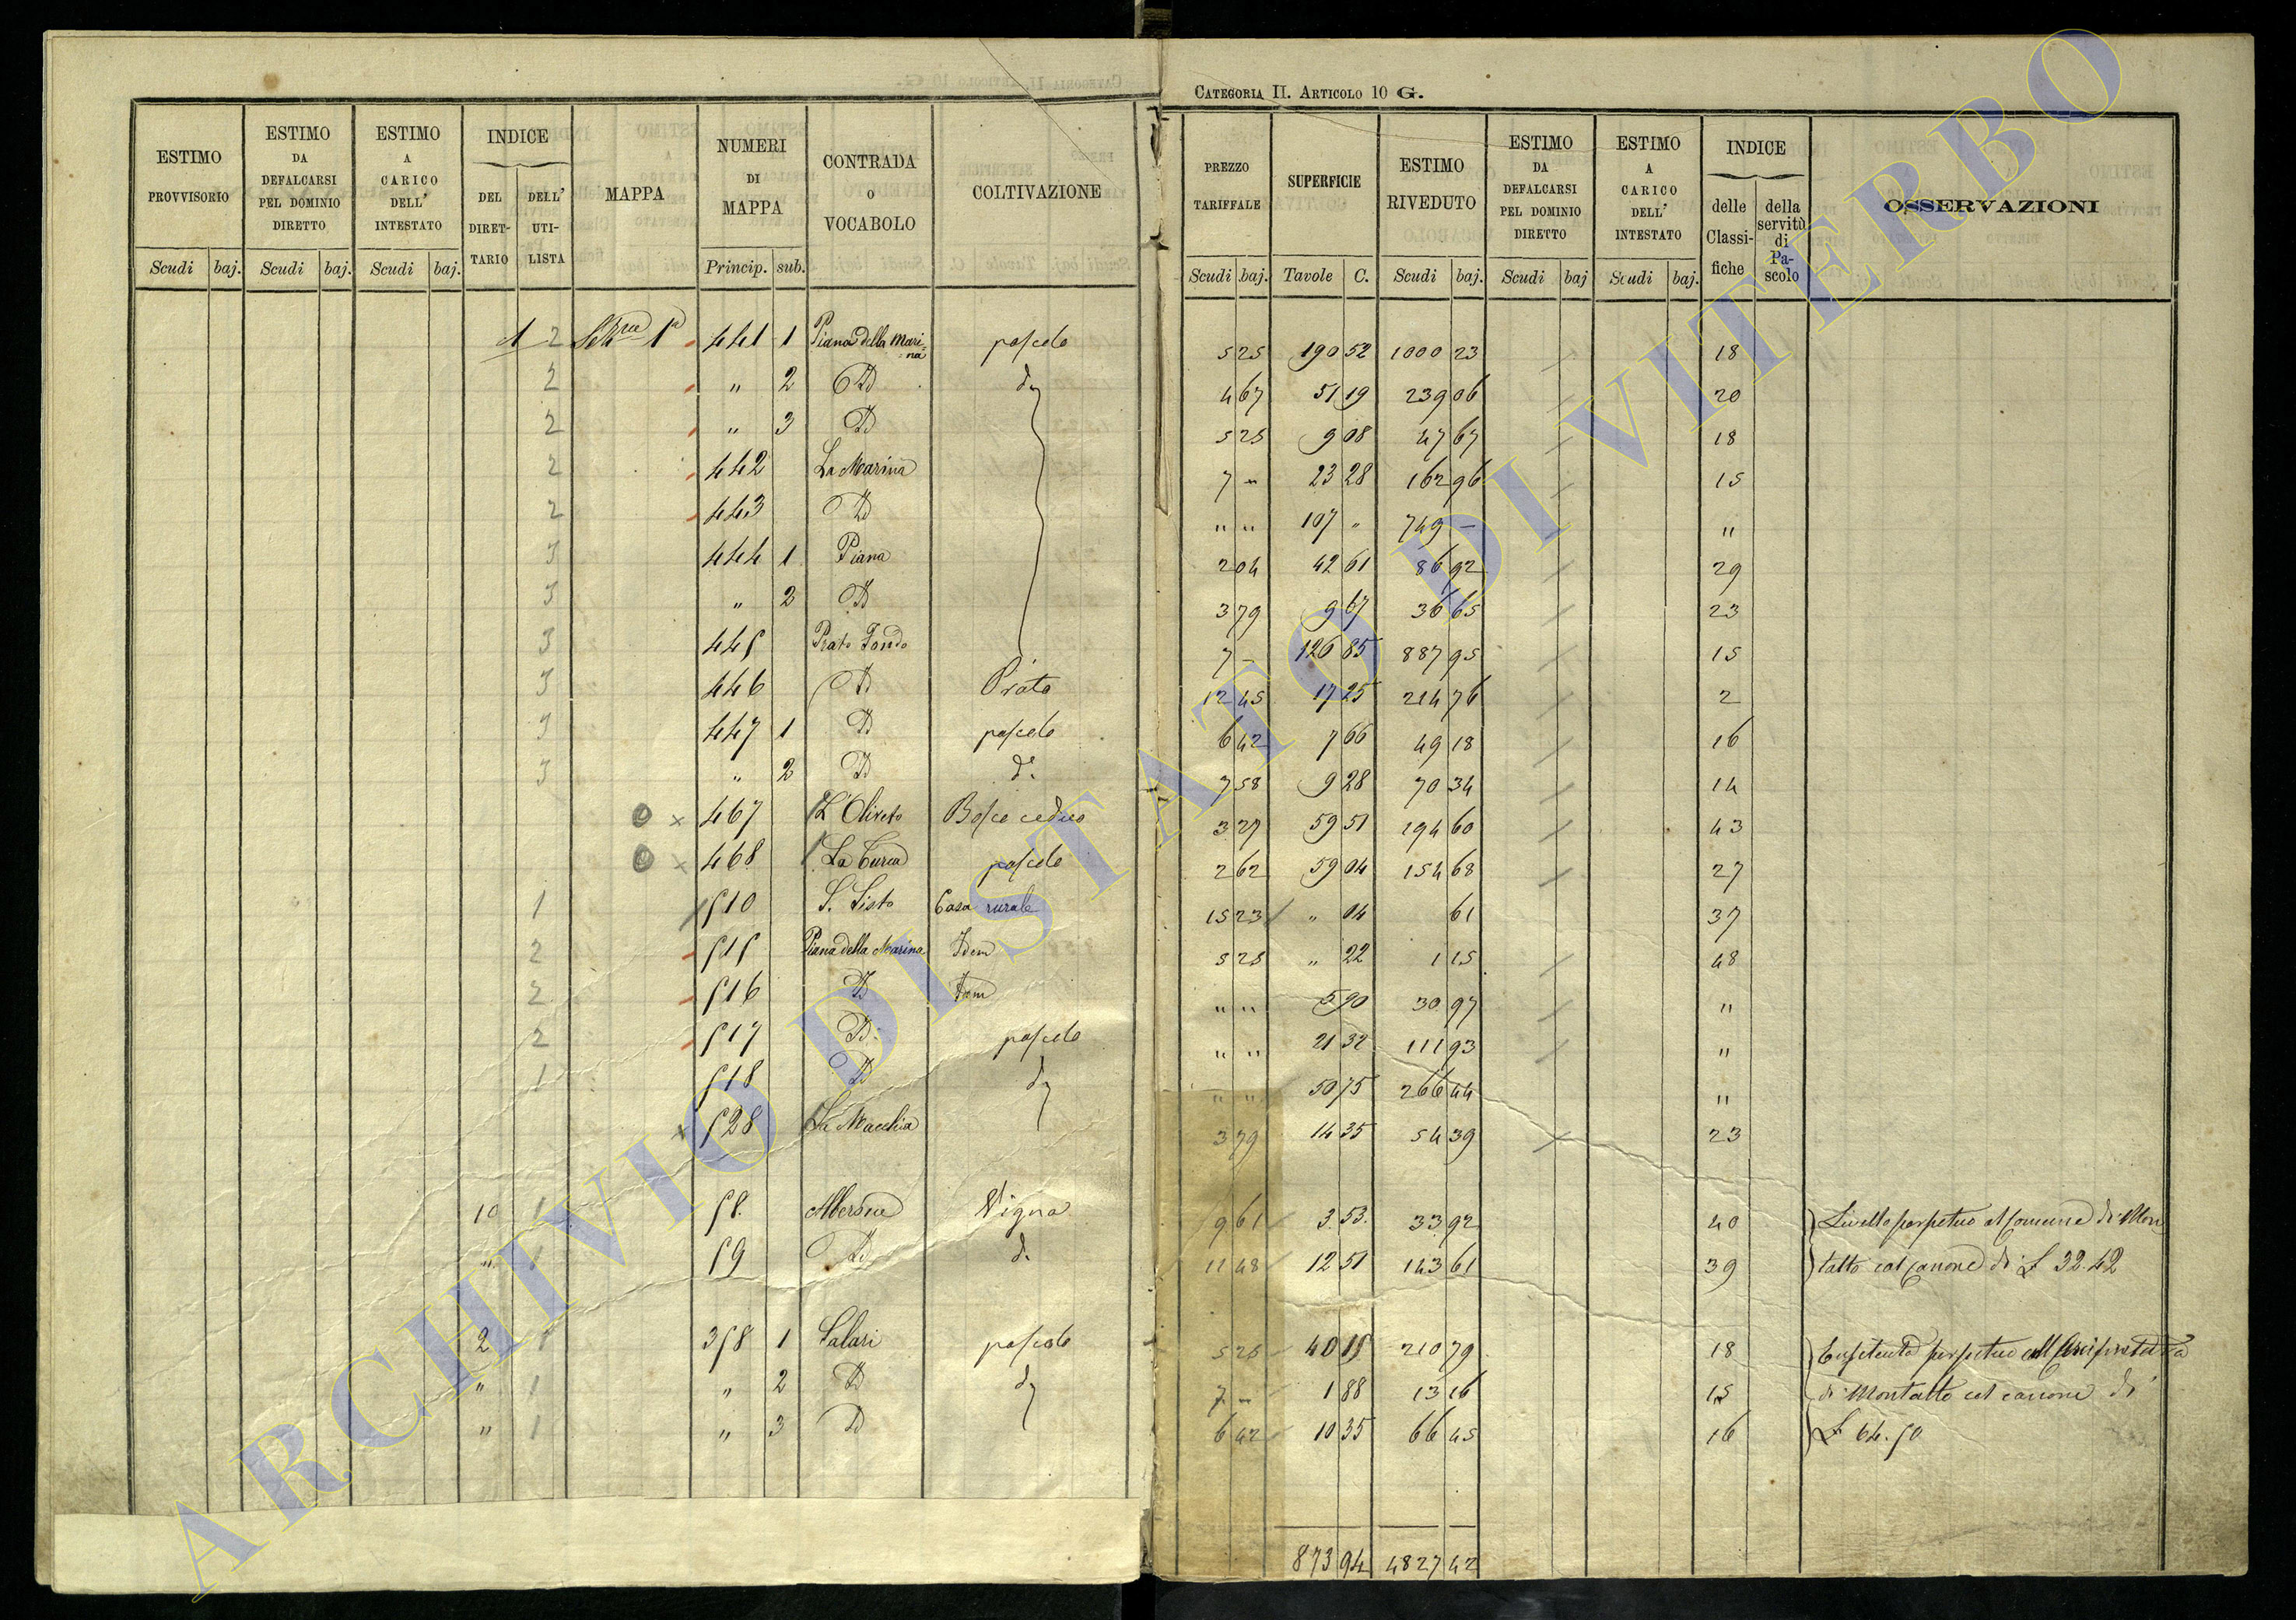 CATEGORIA II. ARTICOLO 10 G.
ESTIMO PROVVISORIO
ESTIMO DA DEFALCARSI PEL DOMINIO DIRETTO
ESTIMO A CARICO DELL' INTESTATO
INDICE
DEL DIRET-TARIO
DELL' UTI-LISTA
MAPPA
NUMERI DI MAPPA
CONTRADA o VOCABOLO
COLTIVAZIONE
PREZZO TARIFFALE
SUPERFICIE
ESTIMO RIVEDUTO
ESTIMO DA DEFALCARSI PEL DOMINIO DIRETTO
ESTIMO A CARICO DELL' INTESTATO
INDICE
delle Classi-fiche
della servitù di Pa-scolo
OSSERVAZIONI
Scudi baj. Scudi baj. Scudi baj. Princip. sub. Scudi baj. Tavole C. Scudi baj. Scudi baj Scudi baj.
1 2 1ª 441 1 Piana della Marina pascolo 5 25 190 52 1000 23 18
2 " 2 D 4 67 51 19 239 06 20
2 " 3 D 5 25 9 08 47 67 18
2 442 La Marina 7 - 23 28 162 96 15
2 443 D " " 107 " 749 - "
3 444 1 Piana 2 04 42 61 86 92 29
3 " 2 D 3 79 9 67 36 65 23
3 445 Prato Fondo 7 - 126 85 887 95 15
3 446 D Prato 12 45 17 25 214 76 2
3 447 1 D pascolo 6 42 7 66 49 18 16
3 " 2 D dº 7 58 9 28 70 34 14
0 x 467 L'Oliveto Bosco ceduo 3 27 59 51 194 60 43
0 x 468 pascolo 2 62 59 04 154 68 27
1 510 S. Sisto Casa rurale 15 23 " 04 61 37
2 515 Piana della Marina Idem 5 25 " 22 1 15 48
2 516 D Idem " " 5 90 30 97 "
2 517 D pascolo " " 21 32 111 93 "
1 518 D " " 50 75 266 44 "
x 528 La Macchia 3 79 14 35 54 39 23
10 1 58 Vigna 9 61 3 53 33 92 40 Livello perpetuo al Comune di Mon
" 1 59 D d. 11 48 12 51 143 61 39 talto col canone di £ 32.42
2 1 358 1 Salari pascolo 5 25 40 15 210 79 18 perpetua
" 1 " 2 D 7 - 1 88 13 16 15 di Montalto col canone di
" 1 " 3 D 6 42 10 35 66 45 16 £ 64.50
873 94 4827 42
ARCHIVIO DI STATO DI VITERBO